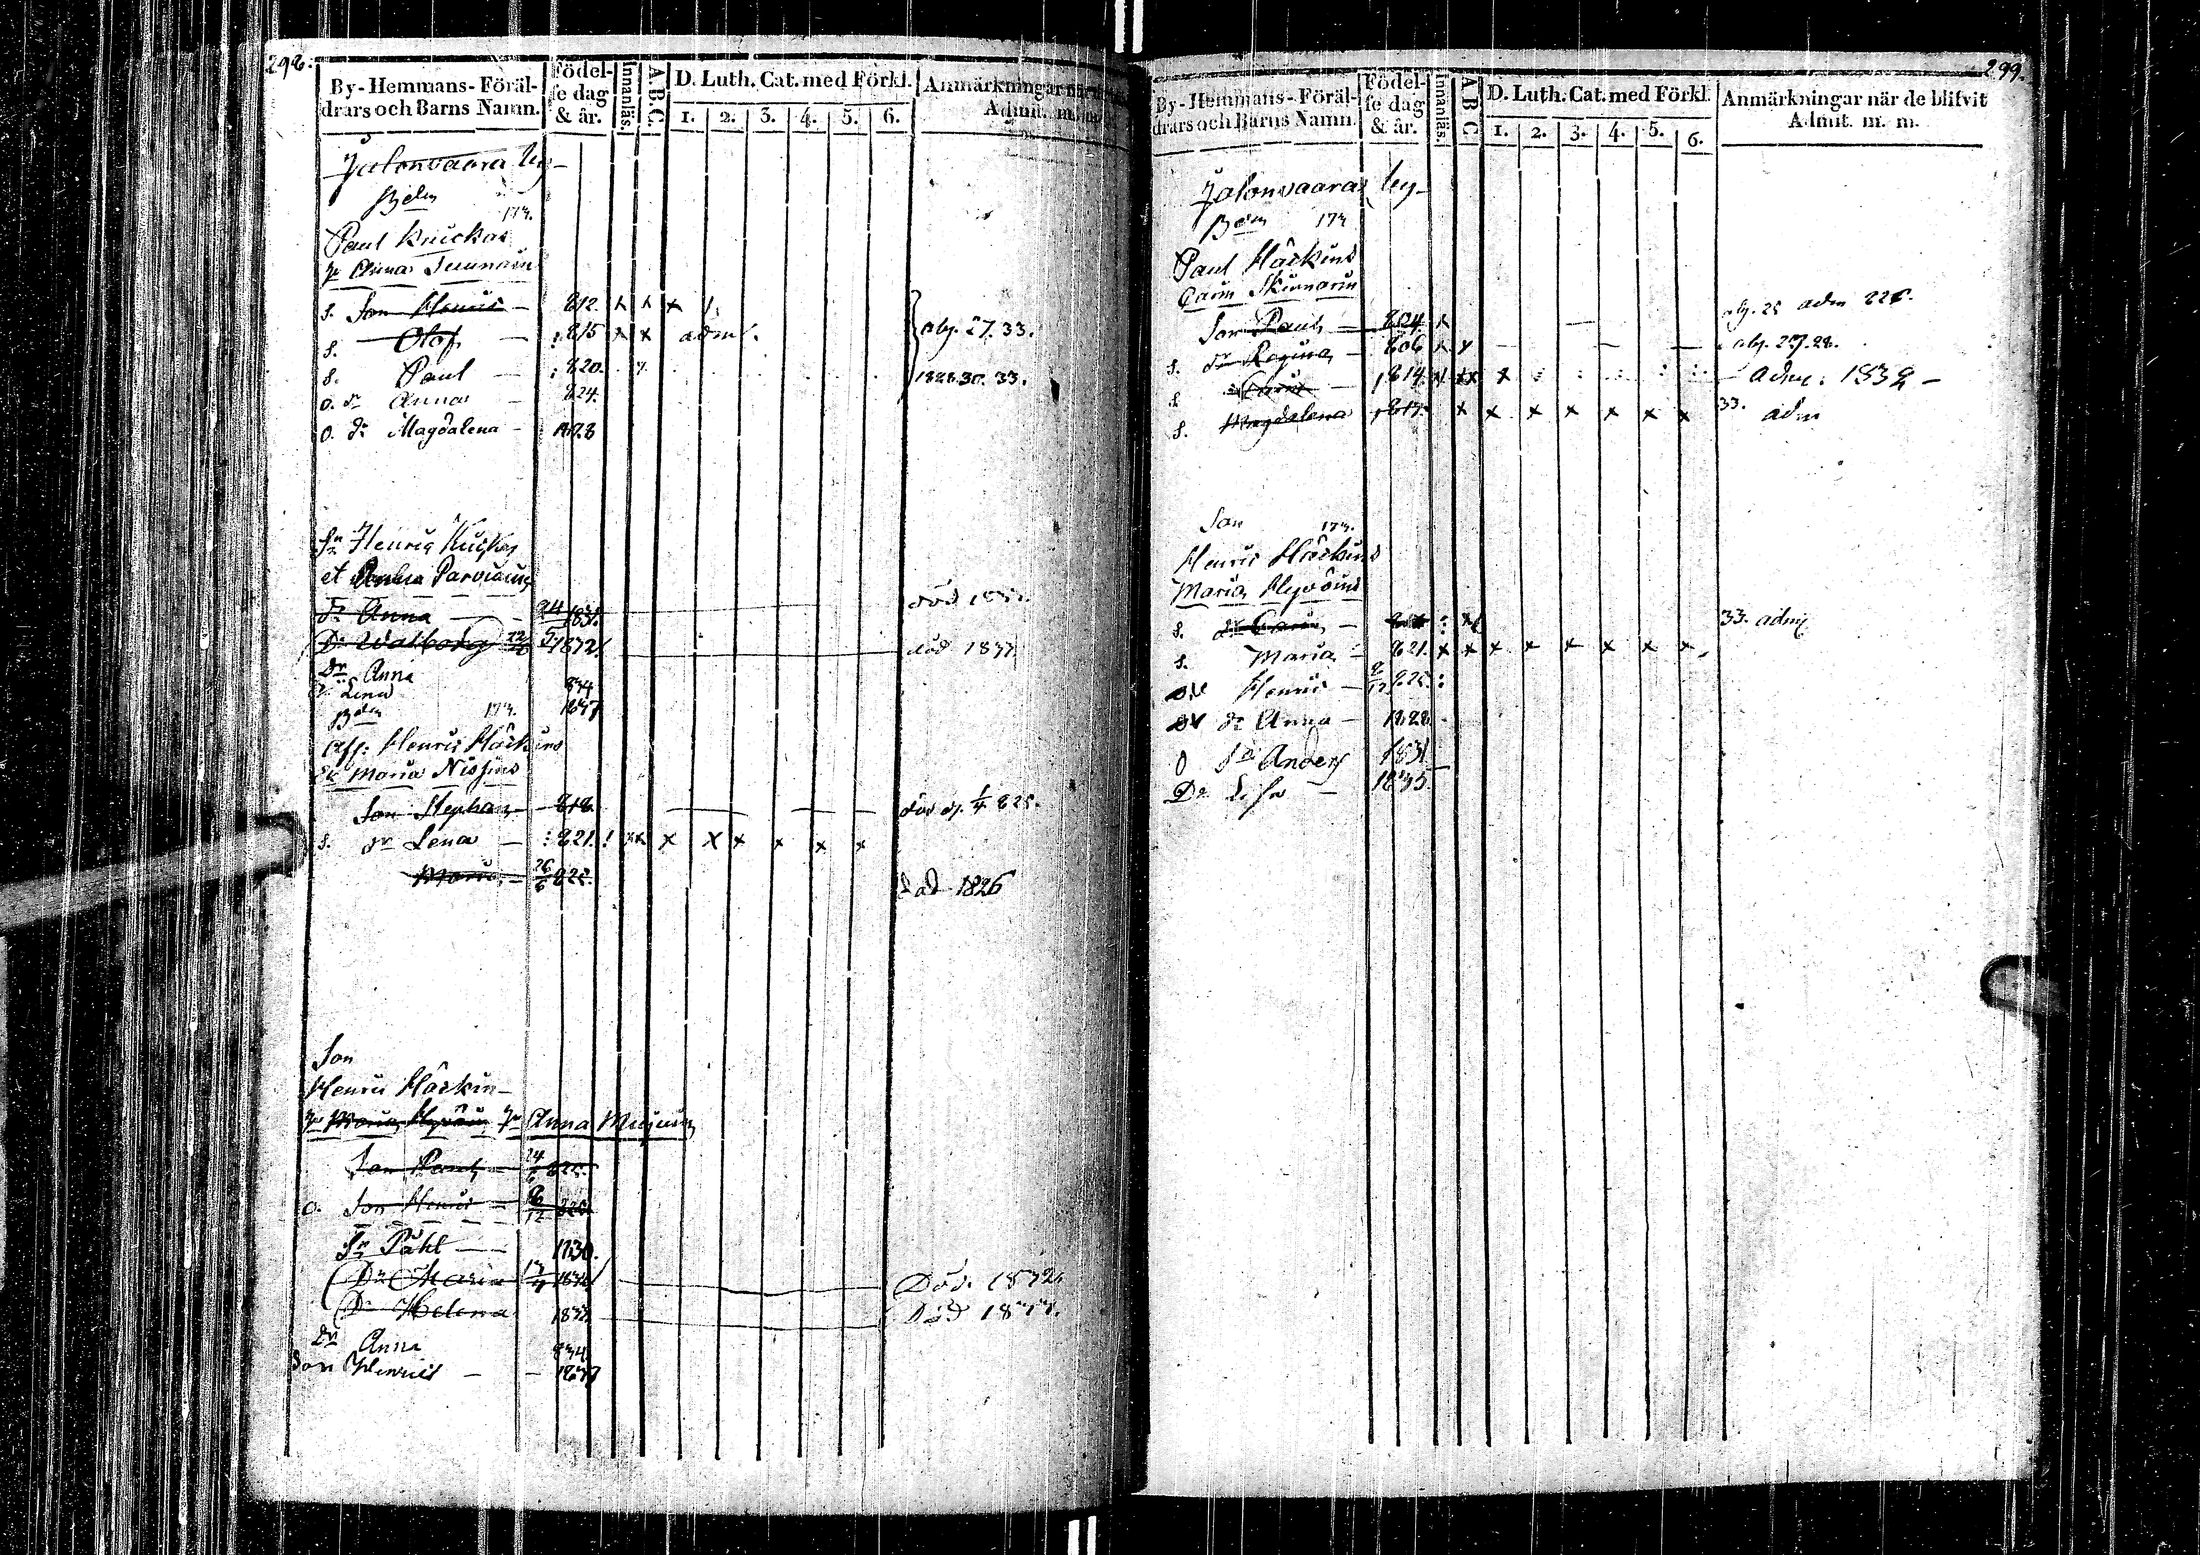 298.
By-Hemmans-Föräl-
drars och Barns Namn.
Födel-
se dag
& år.
Innanläs.
A.B.C.
D. Luth. Cat. med Förkl.
1. 2. 3. 4. 5. 6.
Anmärkningar
Admit.
Jalonvaara by
Bdn 173.
Paul Kuickas
hr Anna
s. Son Henric 812. x x x
s. Olof 815 x x adm. abf. 27. 33.
s. Paul 820. 1828.30. 33.
o. dr Anna 824.
o. dr Magdalena 1828
Sn Henric Kuickas
et Parviainen
dr Anna 24 1831. död
Dr Walborg 22/6 1832. död 1833
Dr Anna 834
Dr Lena 1837
Bdn 173.
Aff: Henric Härkins
Ex Maria Nissins
Son Stephan 818. död d. 1/4 825.
s. dr Lena 821. x x X x x x x
Maria 26/6 822. död 1826
Son
Henric Härkin
hr Maria Hyvöin hr Anna
Son Paul 24/6 825.
o. Son Henric 8/12
Sn Påhl 1830.
Dr Maria 1832 Död. 1832.
Dr Helena 1833 Död 1833.
Dr Anna 834
Son Henric 1837
299.
By-Hemmans-Föräl-
drars och Barns Namn.
Födel-
se dag
& år.
Innanläs.
A B C
D. Luth. Cat. med Förkl.
1. 2. 3. 4. 5. 6.
Anmärkningar när de blifvit
Admit. m. m.
Jalonvaara by
Bdn 173
Paul Härkins
Carin
Son Paul 804. x abf. 25 adm 226.
s. dr Regina 806 x x abf. 27. 28.
s. Carin 814. x xx x adm: 1832
s. Magdalena 817. x x x x x x x 33. adm
Son 173.
Henric Härkins
Maria Hyvöins
s. dr Carin 33. adm
s. Maria 821. x x x x x x x x
Henric 8/12 825.
dr Anna 1828.
o Sn Anders 1831
Dr Lisa 1835.